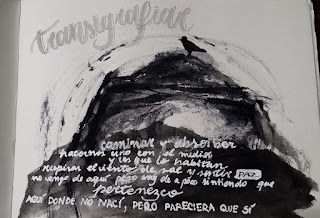 transigrafiar
caminar y absorber
hacernos uno con el medio
y los que lo habitan
respirar el viento de sal y sentir PAZ
no vengo de aquí pero voy de a poco sintiendo que
pertenezco
AQUÍ DONDE NO NACÍ, PERO PARECIERA QUE SÍ